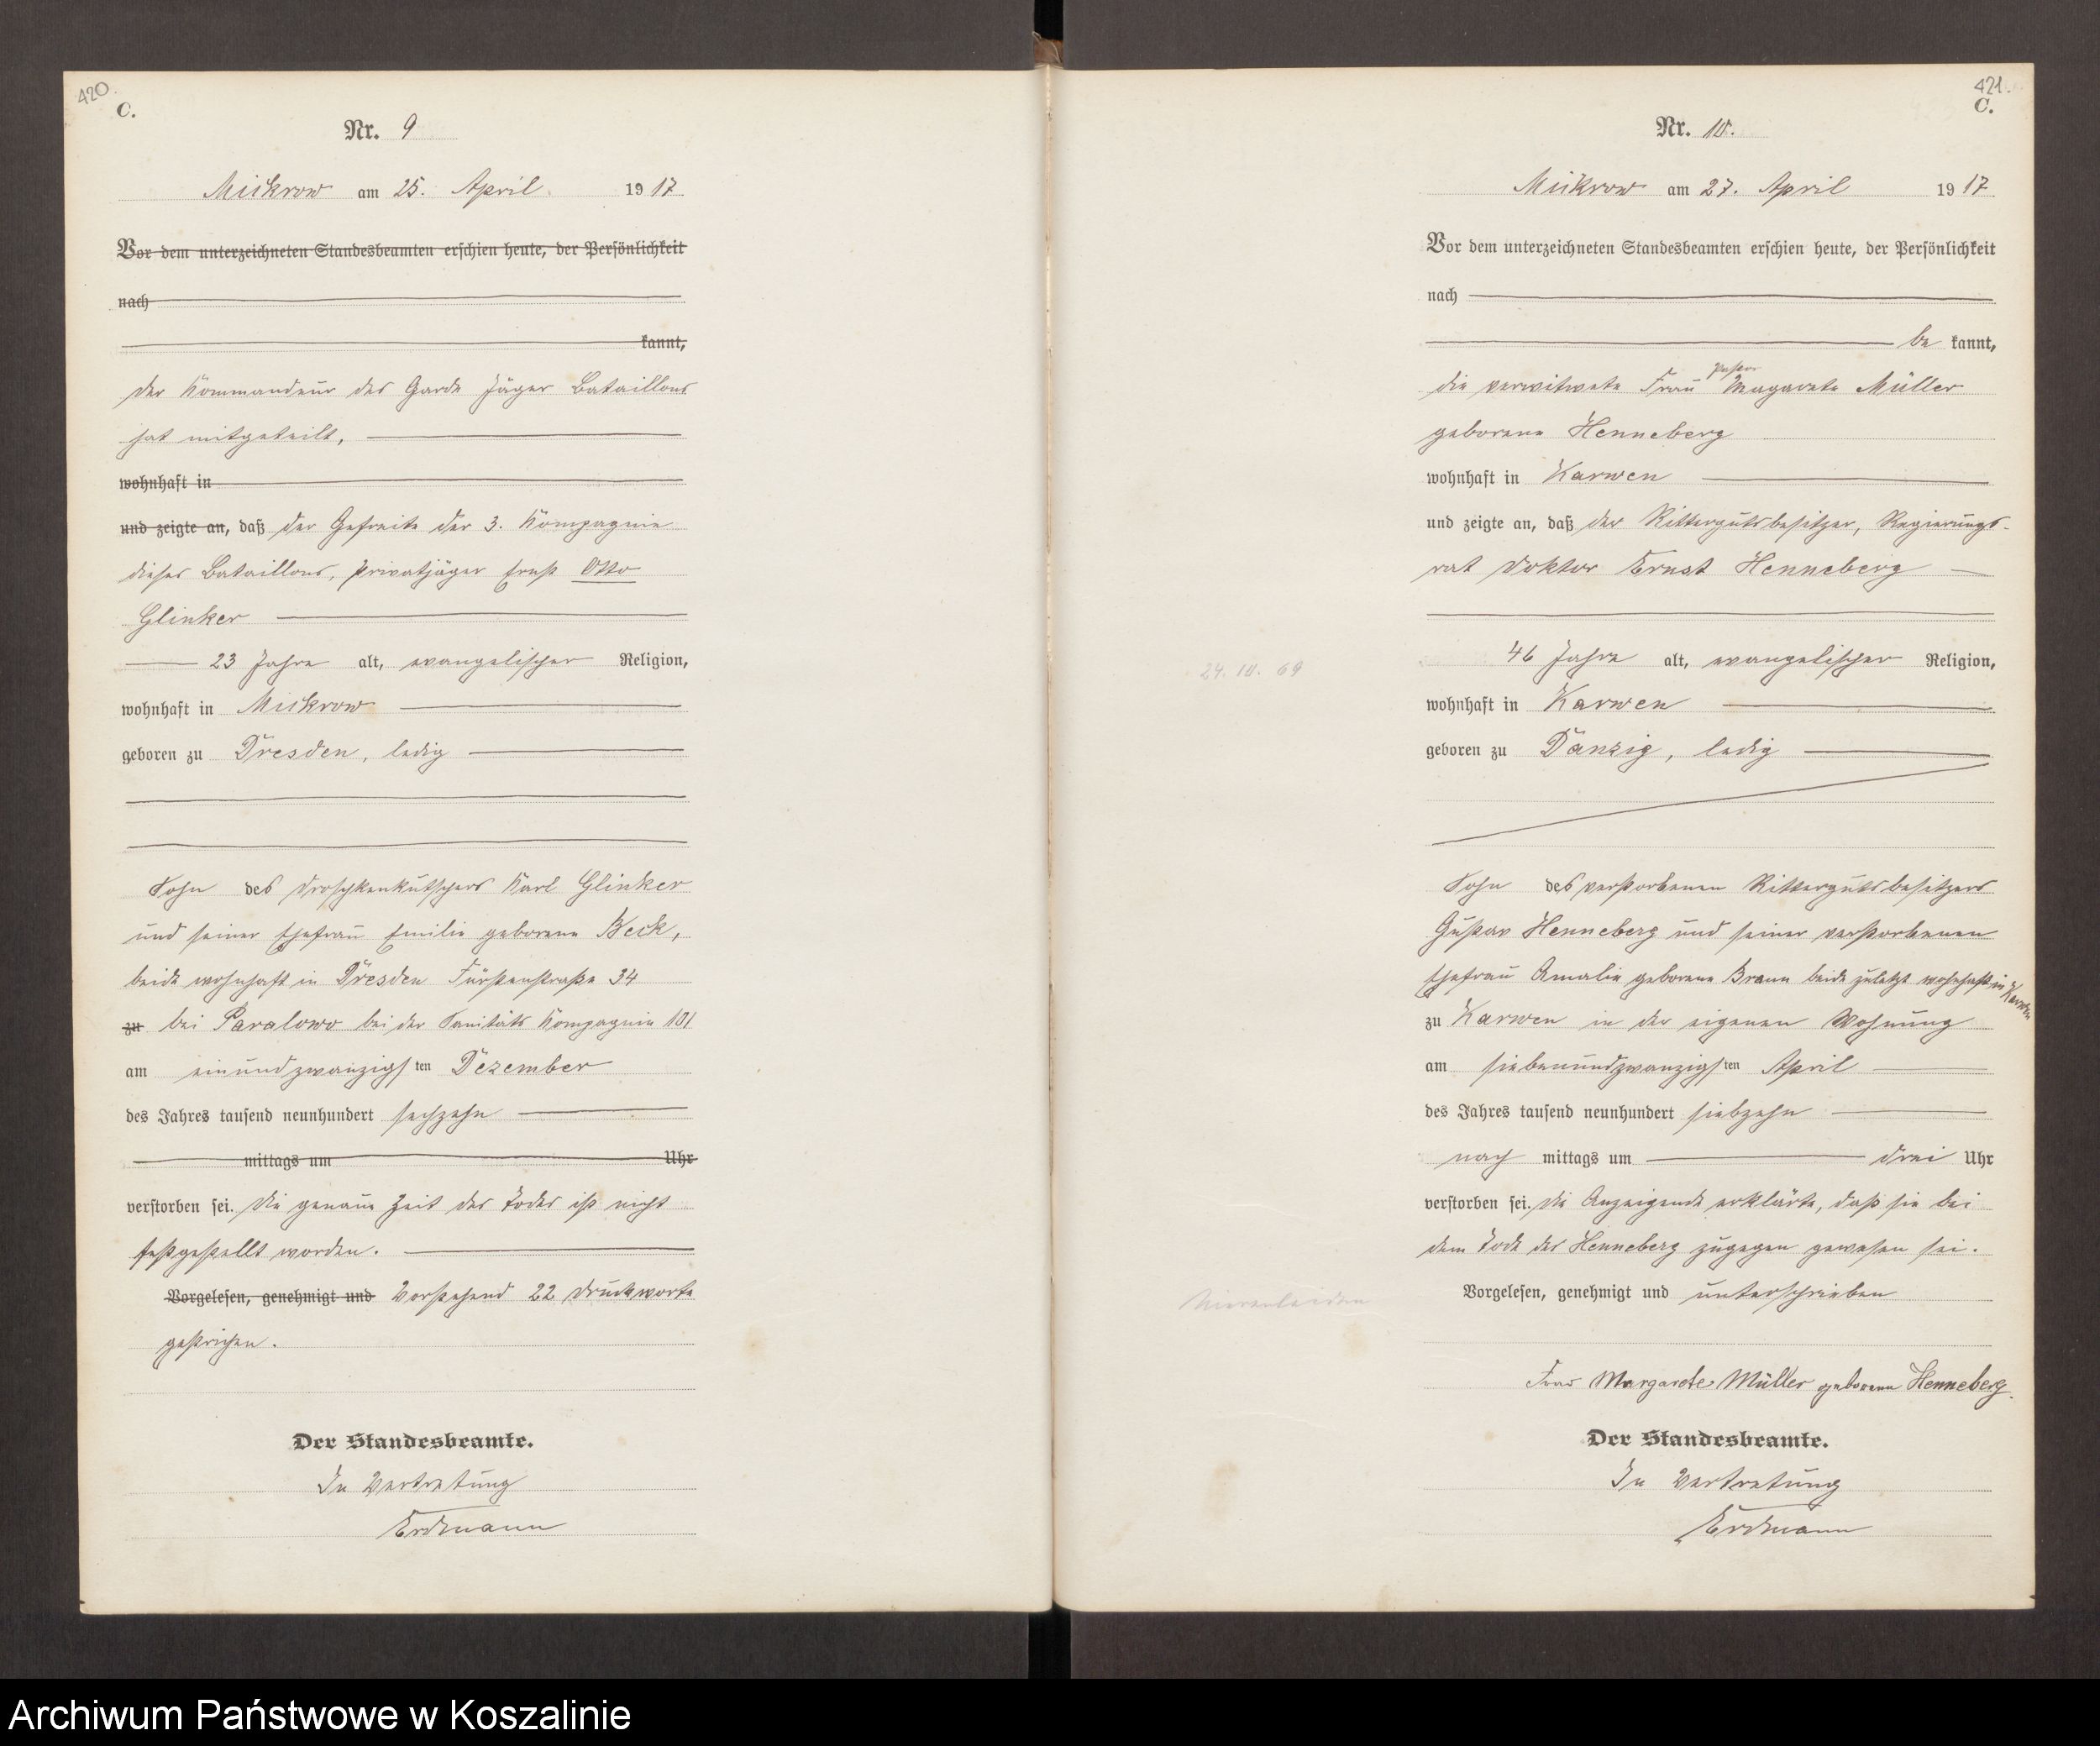 420.
C.
Nr. 9
Mickrow am 25. April 1917
Vor dem unterzeichneten Standesbeamten erschien heute, der Persönlichkeit
nach
kannt,
der Kommandeur des Garde Jäger Bataillons
hat mitgeteilt,
wohnhaft in
und zeigte an, daß der Gefreite der 3. Kompagnie
dieses Bataillons, Privatjäger Ernst Otto
Glinker
23 Jahre alt, evangelischer Religion,
wohnhaft in Mickrow
geboren zu Dresden, ledig
Sohn des Droschkenkutschers Karl Glinker
und seiner Ehefrau Emilie geborene Beck,
beide wohnhaft in Dresden Fürstenstraße 34
zu bei Paralowo bei der Sanitäts Kompagnie 101
am einundzwanzigsten Dezember
des Jahres tausend neunhundert sechzehn
mittags um Uhr
verstorben sei. Die genaue Zeit des Todes ist nicht
festgestellt worden.
Vorgelesen, genehmigt und Vorstehend 22 Druckworte
gestrichen.
Der Standesbeamte.
In Vertretung
Erdmann
421.
C.
Nr. 10.
Mickrow am 27. April 1917
Vor dem unterzeichneten Standesbeamten erschien heute, der Persönlichkeit
nach
be kannt,
die verwitwete Frau Pastor Magarete Müller
geborene Henneberg
wohnhaft in Karwen
und zeigte an, daß der Rittergutsbesitzer, Regierungs-
rat Doktor Ernst Henneberg
46 Jahre alt, evangelischer Religion,
24. 10. 69
wohnhaft in Karwen
geboren zu Danzig, ledig
Sohn des verstorbenen Rittergutsbesitzers
Gustav Henneberg und seiner verstorbenen
Ehefrau Amalie geborene Braun beide zuletzt wohnhaft in Karwen
zu Karwen in der eigenen Wohnung
am siebenundzwanzigsten April
des Jahres tausend neunhundert siebzehn
nach mittags um drei Uhr
verstorben sei. Die Anzeigende erklärte, daß sie bei
dem Tode des Henneberg zugegen gewesen sei.
Vorgelesen, genehmigt und unterschrieben
Nierenleiden
Frau Margarete Müller geborene Henneberg.
Der Standesbeamte.
In Vertretung
Erdmann
Archiwum Państwowe w Koszalinie